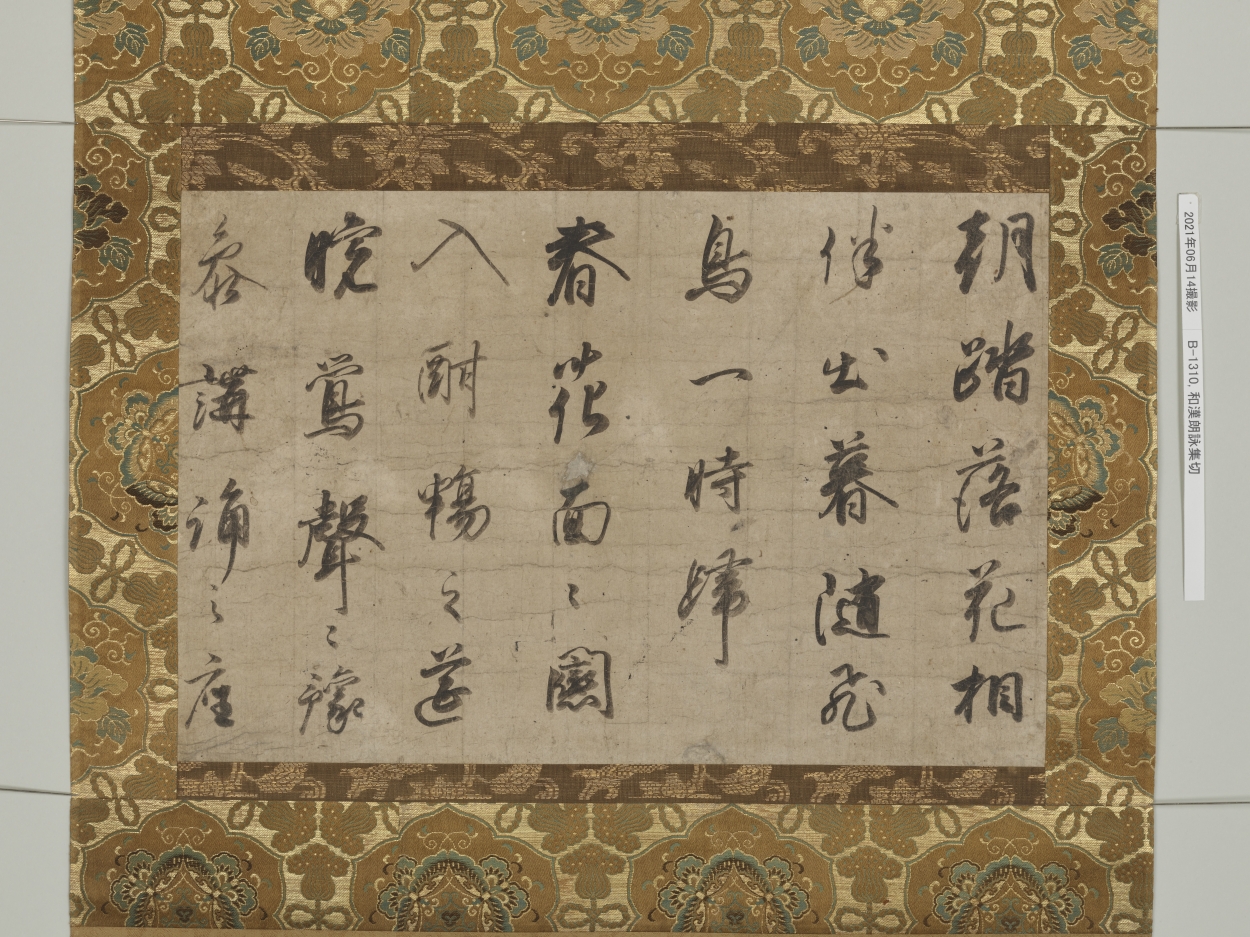 朝踏落花相
伴出暮随飛
鳥一時歸
春花面〻闌
入酣暢之莚
晩鶯聲〻豫
參講誦之座
2021年06月14撮影 B-1310, 和漢朗詠集切